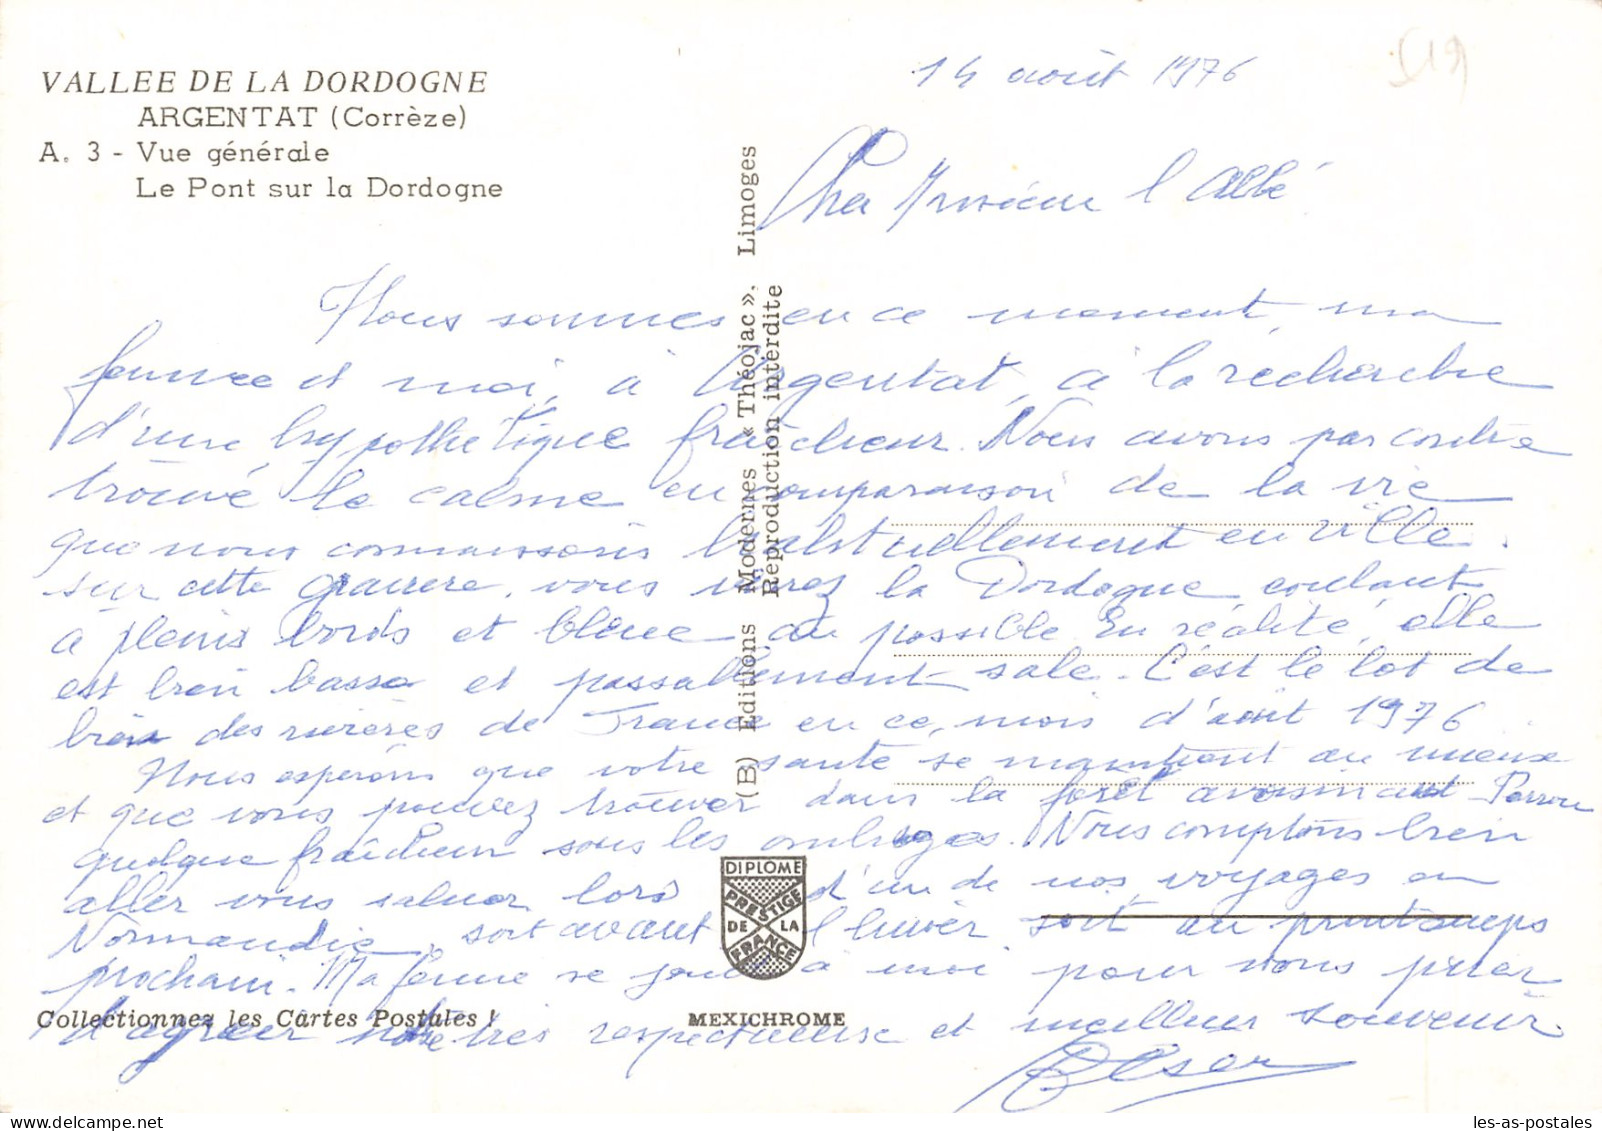 VALLEE DE LA DORDOGNE
ARGENTAT (Corrèze)
A. 3 - Vue générale
Le Pont sur la Dordogne
14 août 1976
Cher Monsieur l'Abbé
Nous sommes en ce moment, ma
femme et moi, à Argentat, à la recherche
d'une hypothétique fraîcheur. Nous avons par contre
trouvé le calme en comparaison de la vie
que nous connaissons habituellement en ville.
sur cette gravure, vous verrez la Dordogne, coulant
à pleins bords et bleue au possible. En réalité, elle
est bien basse et passablement sale. C'est le lot de
bien des rivières de France en ce mois d'août 1976
Nous espérons que votre santé se maintient au mieux
et que vous pouvez trouver dans la forêt avoisinant
quelque fraîcheur sous les ombrages. Nous comptons bien
aller vous saluer lors d'un de nos voyages en
Normandie, soit avant l'hiver soit au printemps
prochain. Ma femme se joint à moi pour vous prier
d'agréer notre très respectueux et meilleur souvenir.
(B) Editions Modernes « Théojac », Limoges
Reproduction interdite
DIPLOME
PRESTIGE
DE LA
FRANCE
Collectionnez les Cartes Postales !
MEXICHROME
les-as-postales